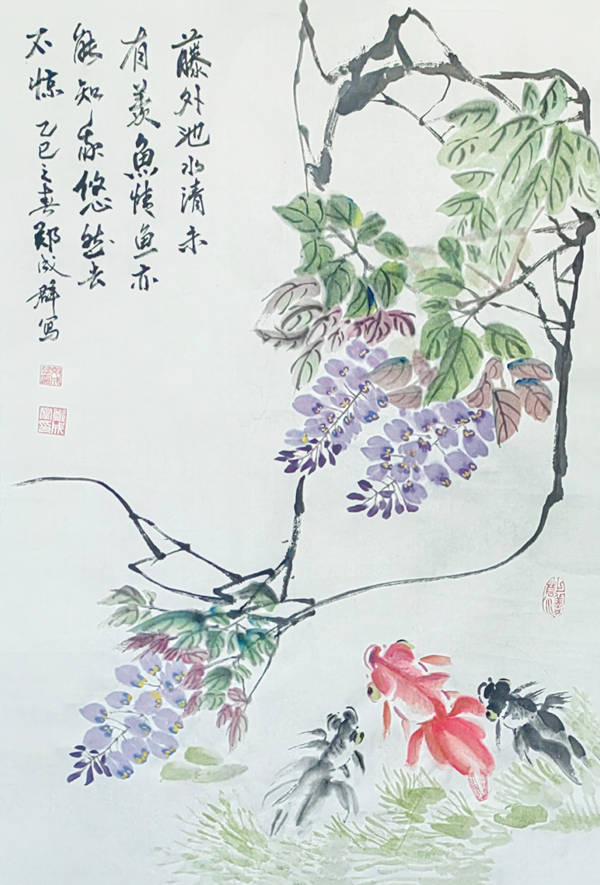 藤外池水清未
有羡魚情鱼亦
能知我悠然去
不惊 乙巳之春郑成群写